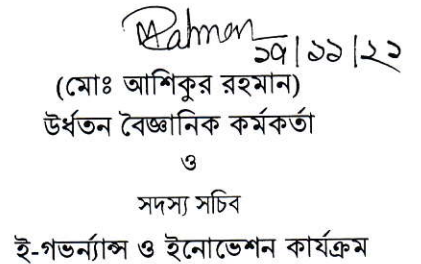 Rahman
১৭/১১/২১
(মোঃ আশিকুর রহমান)
উর্ধতন বৈজ্ঞানিক কর্মকর্তা
ও
সদস্য সচিব
ই-গভর্ন্যান্স ও ইনোভেশন কার্যক্রম